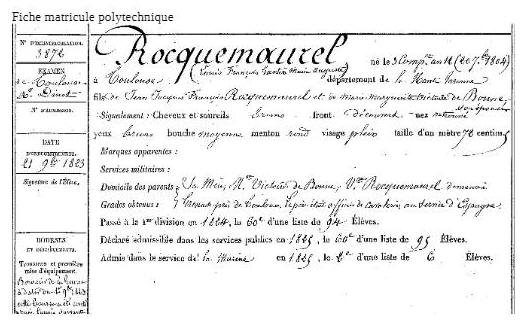 Fiche matricule polytechnique
N° D'IMMATRICULATION.
3872
EXAMEN
de Toulouse
Mr Dinet
N° D'ADMISSION.
DATE
21 9bre 1823
Signature de l'Élève.
BOURSES
Trousseau et première
mise d'équipement.
Rocquemaurel
né le 3 Comp.re an 12 (20 7bre 1804)
(Louis François Gaston Marie Auguste)
à Toulouse département de la Haute Garonne
fils de Jean Jacques François Rocquemaurel et de Marie Marguerite Victoire de Bonne
Signalement : Cheveux et sourcils bruns front découvert nez
yeux bruns bouche moyenne menton rond visage plein taille d'un mètre 78 centim.
Marques apparentes :
Services militaires :
Domicile des parents : Sa Mère, Me Victoire de Bonne, Ve Rocquemaurel demeurant
Grades obtenus : près de Toulouse, le père était officier de au service d'Espagne
Passé à la 1re division en 1824, le 60e d'une liste de 94 Élèves.
Déclaré admissible dans les services publics en 1825, le 60e d'une liste de 95 Élèves.
Admis dans le service de la Marine en 1825, le 2e d'une liste de 6 Élèves.